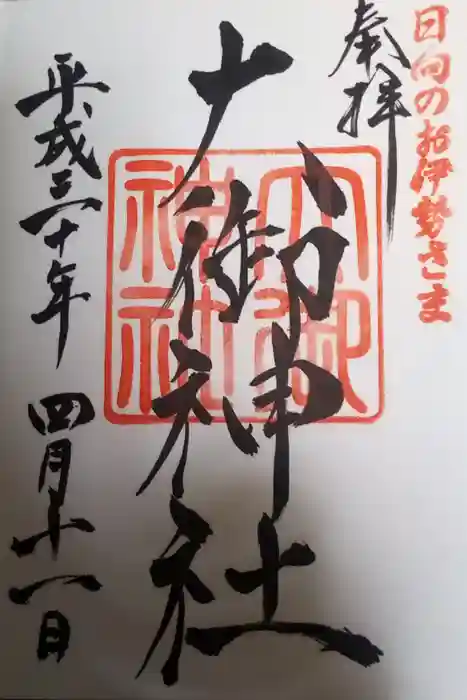 日向のお伊勢さま
奉拝
大御神社
大御
神社
平成三十年
四月十一日